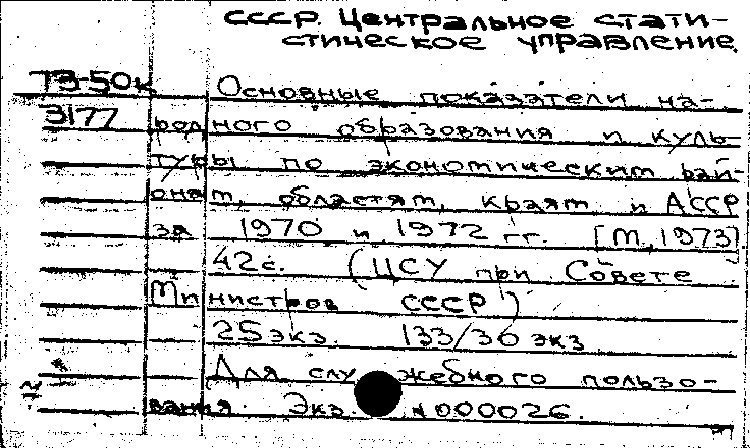 СССР. Центральное стати-
стическое управление.
73-50к Основные показатели на-
3177 родного образования и куль-
туры по экономическим рай-
онам, областям, краям и АССР
за 1970 и 1972 гг. [М., 1973]
42с. (ЦСУ при Совете
Министров СССР)
25 экз. 133/36 экз
Для служебного пользо-
вания. Экз. N 000026.